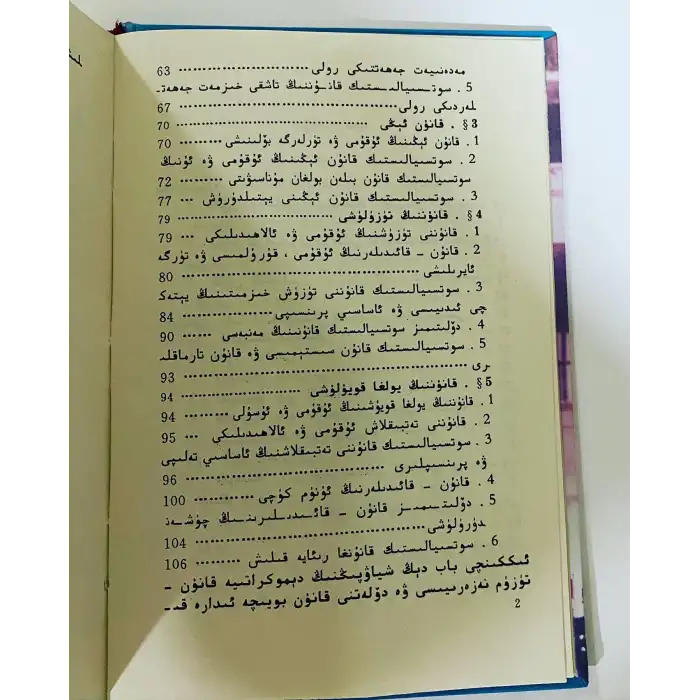 مەدەنىيەت جەھەتتىكى رولى ........................... 63
5 . سوتسىيالىستىك قانۇننىڭ تاشقى خىزمەت جەھەتـ
لەردىكى رولى ........................... 67
§3 . قانۇن ئېڭى ........................... 70
1 . قانۇن ئېڭىنىڭ ئۇقۇمى ۋە تۈرلەرگە بۆلىنىشى .......... 70
2 . سوتسىيالىستىك قانۇن ئېڭىنىڭ ئۇقۇمى ۋە ئۇنىڭ
سوتسىيالىستىك قانۇن بىلەن بولغان مۇناسىۋىتى .......... 72
3 . سوتسىيالىستىك قانۇن ئېڭىنى يېتىلدۈرۈش ... 77
§4 . قانۇننىڭ تۈزۈلۈشى ........................... 79
1 . قانۇننى تۈزۈشنىڭ ئۇقۇمى ۋە ئالاھىدىلىكى ... 79
2 . قانۇن - قائىدىلەرنىڭ ئۇقۇمى ، قۇرۇلمىسى ۋە تۈرگە
ئايرىلىشى ........................... 80
3 . سوتسىيالىستىك قانۇننى تۈزۈش خىزمىتىنىڭ يېتەكـ
چى ئىدىيىسى ۋە ئاساسىي پرىنسىپى .................. 84
4 . دۆلىتىمىز سوتسىيالىستىك قانۇنىنىڭ مەنبەسى ...... 90
5 . سوتسىيالىستىك قانۇن سىستېمىسى ۋە قانۇن تارماقلىـ
رى ........................... 93
§5 . قانۇننىڭ يولغا قويۇلۇشى ........................... 94
1 . قانۇننى يولغا قويۇشنىڭ ئۇقۇمى ۋە ئۇسۇلى .......... 94
2 . قانۇننى تەتبىقلاش ئۇقۇمى ۋە ئالاھىدىلىكى ... 95
3 . سوتسىيالىستىك قانۇننى تەتبىقلاشنىڭ ئاساسىي تەلىپى
ۋە پرىنسىپلىرى ........................... 96
4 . قانۇن - قائىدىلەرنىڭ ئۈنۈم كۈچى ............ 100
5 . دۆلىتىمىز قانۇن - قائىدىلىرىنىڭ چۈشەنـ
دۈرۈلۈشى ........................... 104
6 . سوتسىيالىستىك قانۇنغا رىئايە قىلىش .......... 106
ئىككىنچى باب دېڭ شياۋپىڭنىڭ دېموكراتىيە قانۇن -
تۈزۈم نەزەرىيىسى ۋە دۆلەتنى قانۇن بويىچە ئىدارە قىـ
2